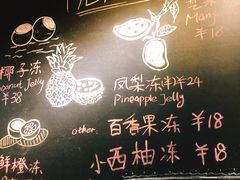 Mang
¥18
椰子冻
oconut Jelly
¥38
凤梨冻(半)¥24
Pineapple Jelly
other.
百香果冻 ¥18
鲜橙冻
小西柚冻 ¥18